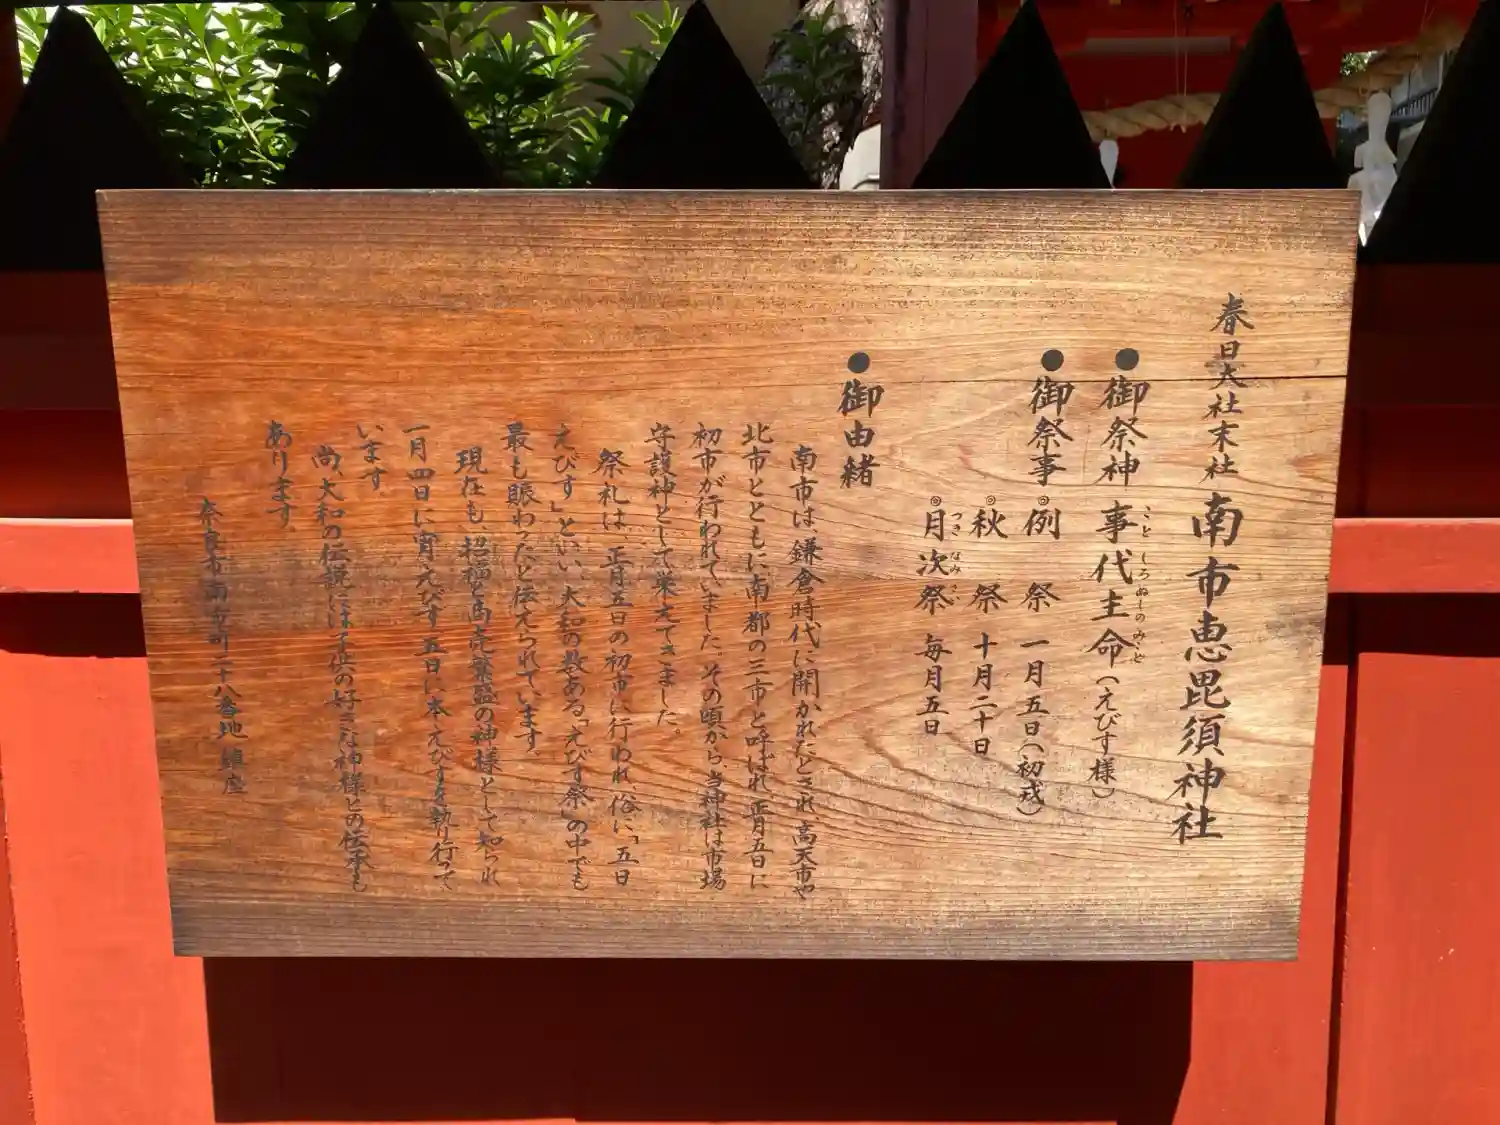 春日大社末社 南市恵毘須神社
●御祭神 事代主命(えびす様)
ことしろぬしのみこと
●御祭事 ◎例祭 一月五日(初戎)
◎秋祭 十月二十日
◎月次祭 毎月五日
つきなみさい
●御由緒
南市は鎌倉時代に開かれたとされ、高天市や
北市とともに南都の三市と呼ばれ、正月五日に
初市が行われていました。その頃から、当神社は市場
守護神として栄えてきました。
祭礼は、正月五日の初市に行われ、俗に「五日
えびす」といい、大和の数ある「えびす祭」の中でも
最も賑わったと伝えられています。
現在も、招福と商売繁盛の神様として知られ
一月四日に宵えびす、五日に本えびすを執り行って
います。
尚、大和の伝説には子供の好きな神様との伝承も
あります。
奈良市南市町二十八番地 鎮座